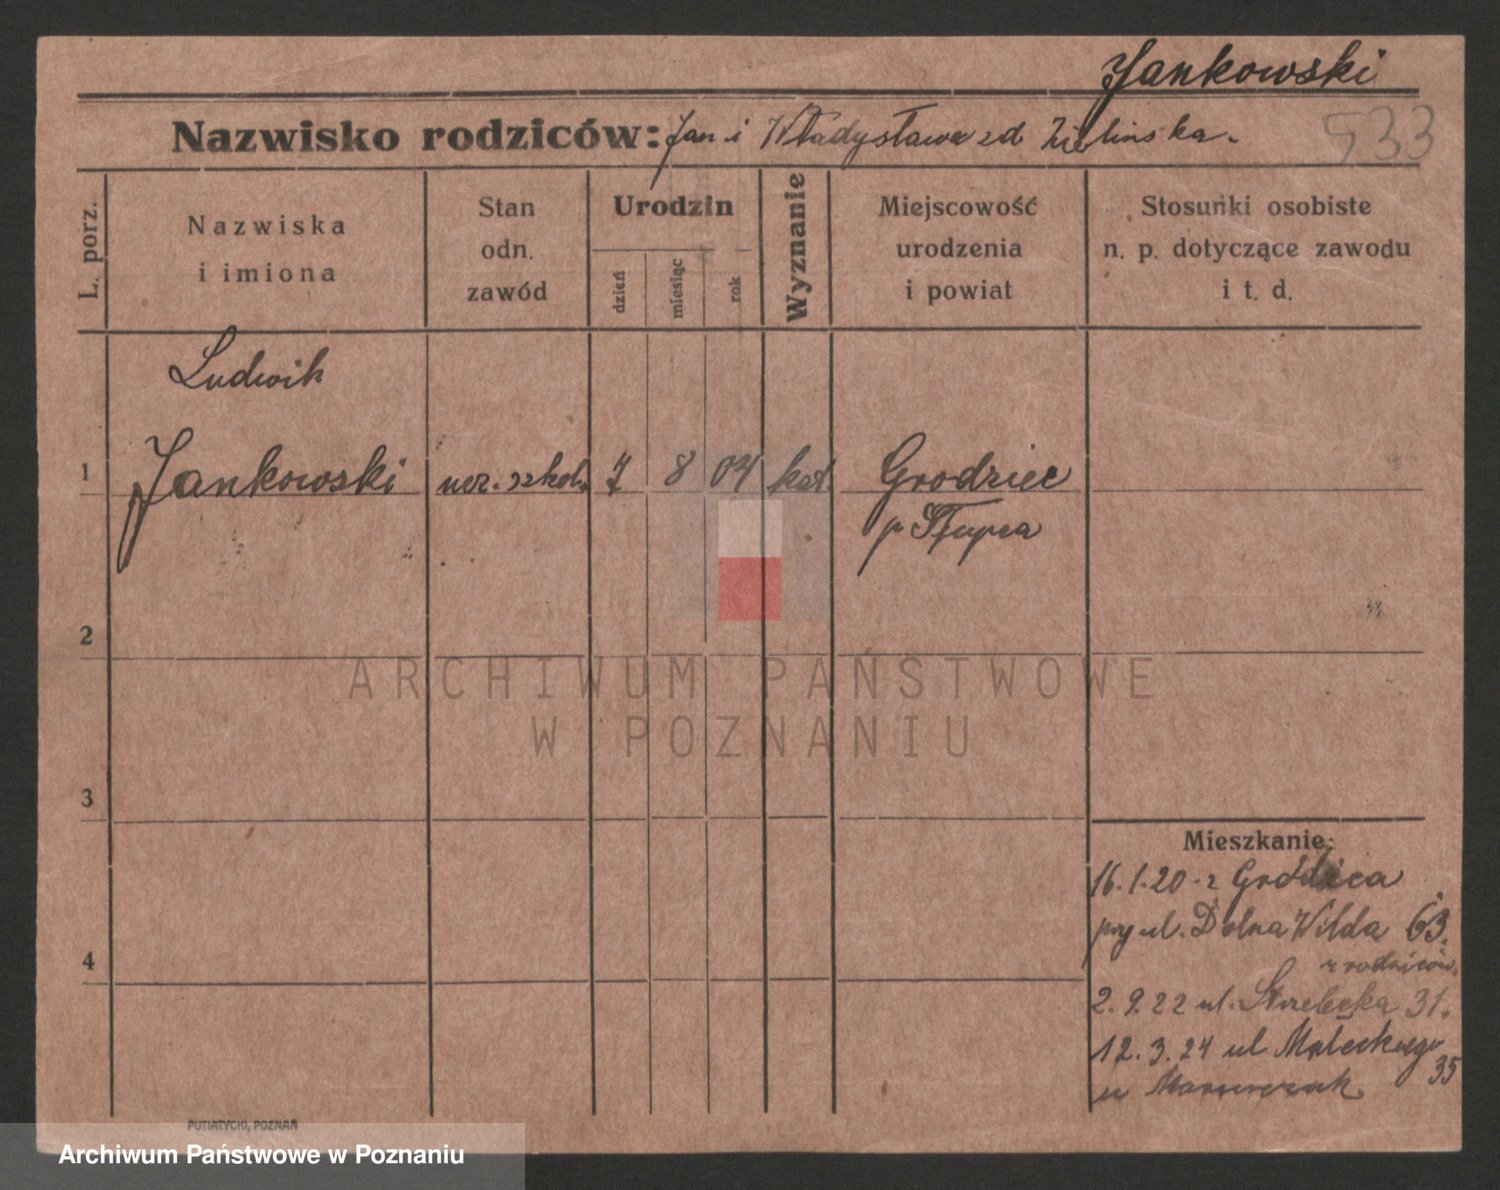 Jankowski
Nazwisko rodziców: Jan i Władysława zd Zielińska.
533
L. porz.
Nazwiska
i imiona
Stan
odn.
zawód
Urodzin
dzień
miesiąc
rok
Wyznanie
Miejscowość
urodzenia
i powiat
Stosunki osobiste
n. p. dotyczące zawodu
i t. d.
Ludwik
1 Jankowski ucz. szkol. 7 8 04 kat. Grodziec
p Słupca
2
3
4
Mieszkanie:
16.1.20 z Grodźca
przy ul. Dolna Wilda 63.
u rodziców.
2.9.22 ul. Strzelecka 31.
12.3.24 ul Małeckiego
35
u
PUTIATYCKI, POZNAŃ
ARCHIWUM PAŃSTWOWE
W POZNANIU
Archiwum Państwowe w Poznaniu